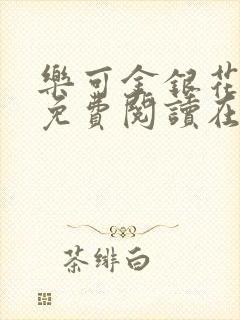 樂可金銀花
免費閱讀在
茶绯白